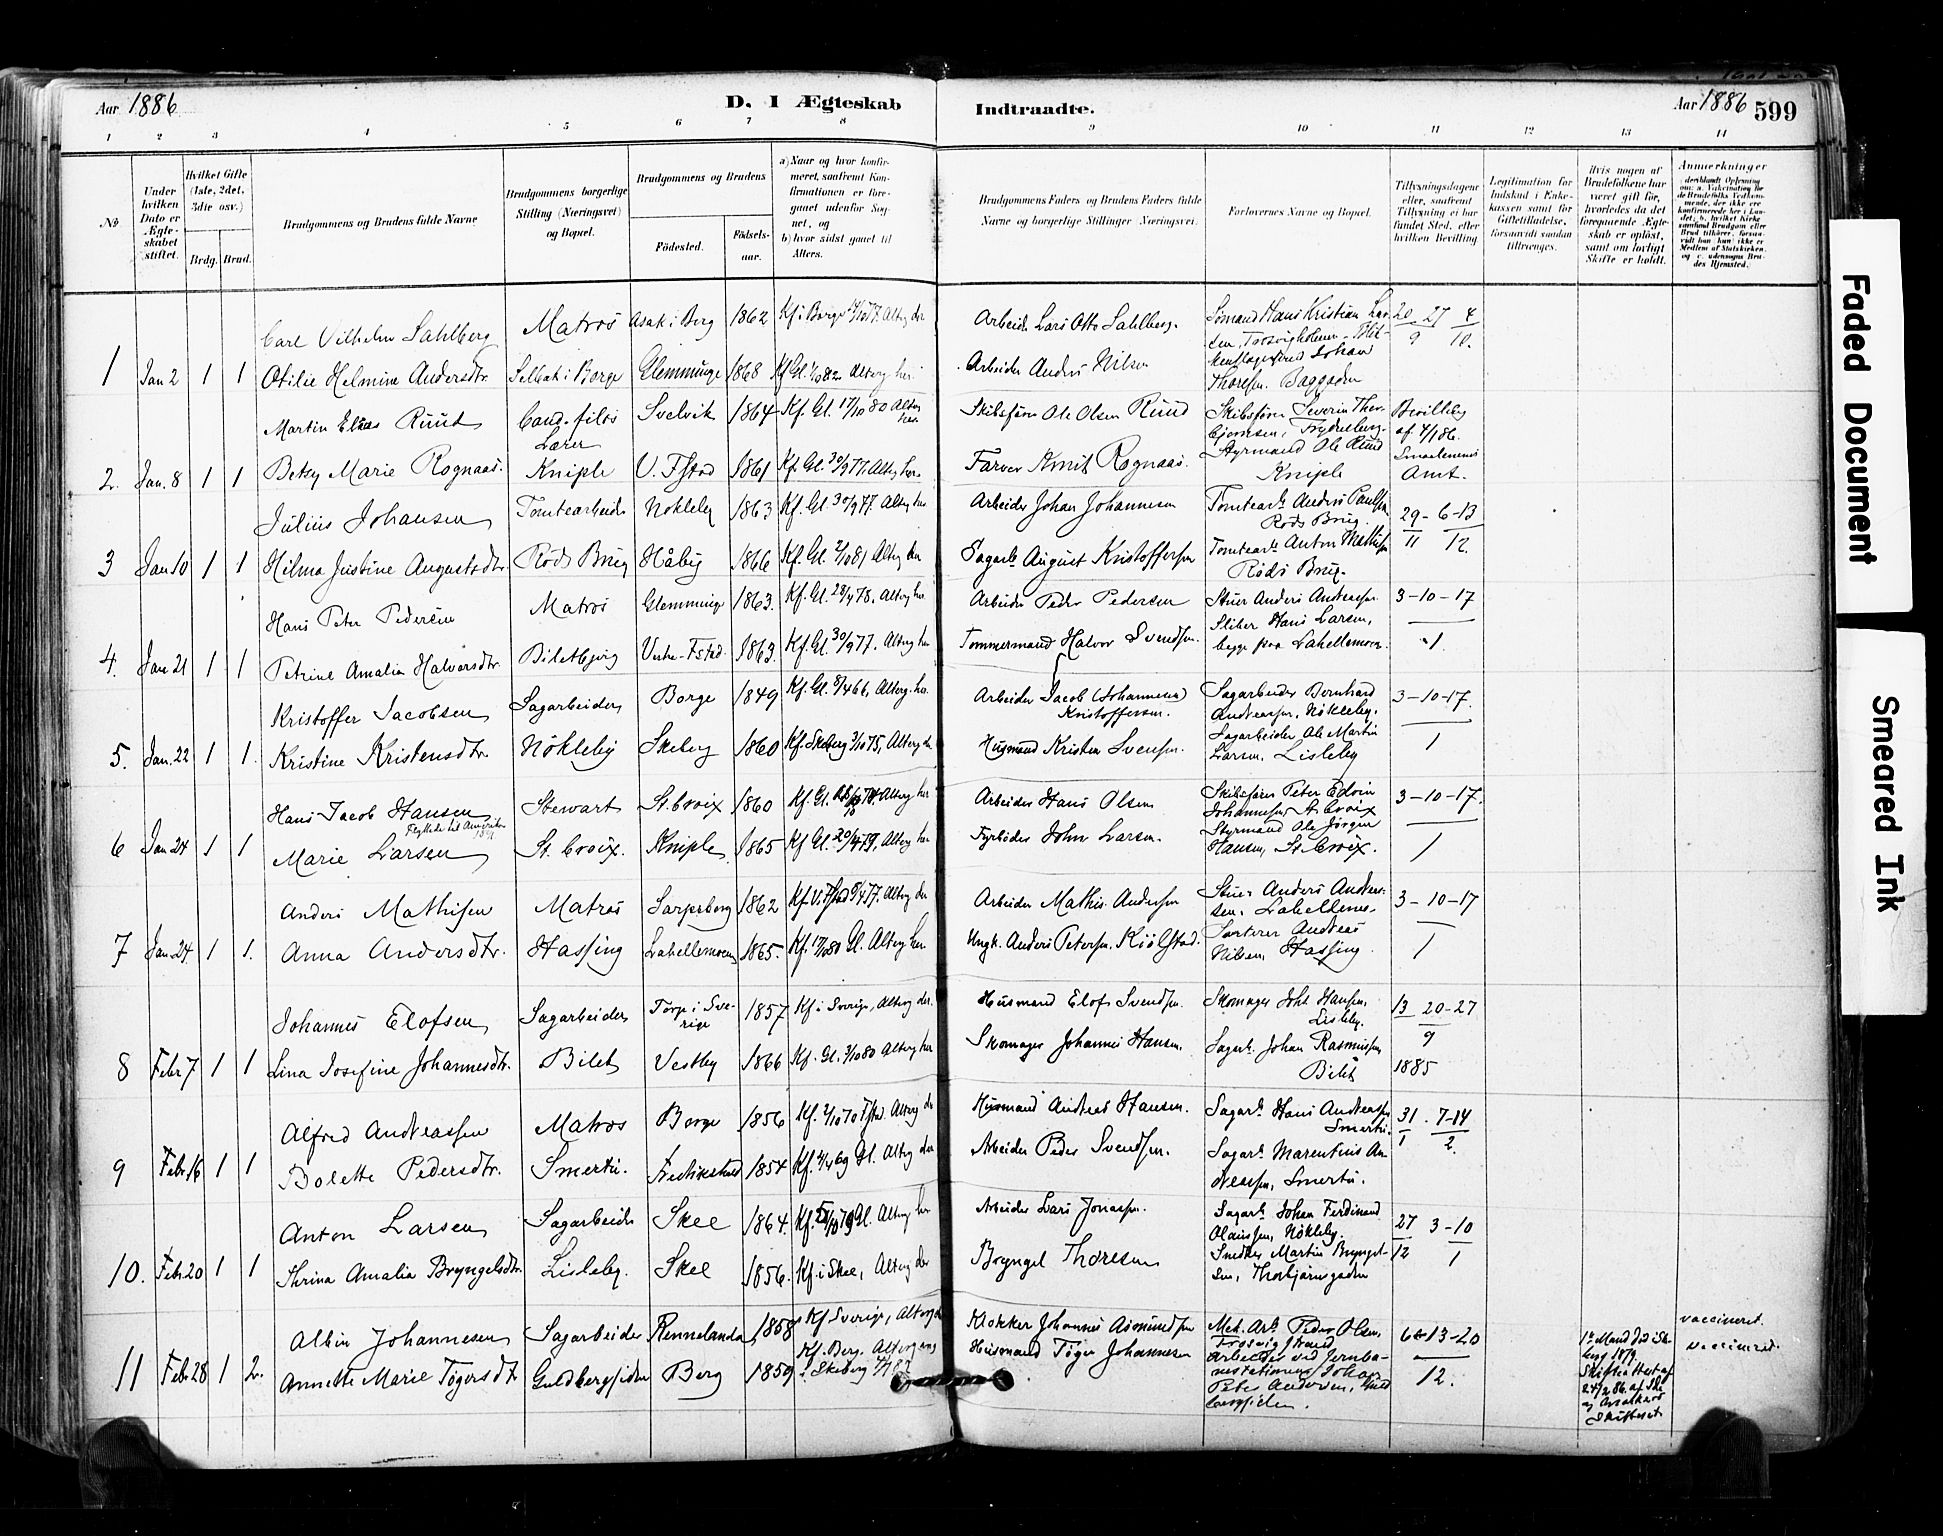 Aar 1886
D. I Ægteskab
Indtraadte.
Aar 1886 599
1 2 3 4 5 6 7 8 9 10 11 12 13 14
№
Under hvilken Dato er Ægteskabet stiftet.
Hvilket Gifte (1ste, 2det, 3die osv.)
Brdg. Brud.
Brudgommens og Brudens fulde Navne
Brudgommens borgerlige Stilling (Næringsvei) og Bopæl.
Brudgommens og Brudens
Fødested.
Fødsels-aar.
a) Naar og hvor konfir-
meret, saafremt Kon-
firmationen er fore-
gaaet udenfor Sog-
net, og
b) hvor sidst gaaet til
Alters.
Brudgommens Faders og Brudens Faders fulde
Navne og borgerlige Stillinger Næringsvei.
Forlovernes Navne og Bopæl.
Tillysningsdagene
eller, saafremt
Tillysning ei har
fundet Sted, efter
hvilken Bevilling.
Legitimation for
Indskud i Enke-
kassen samt for
Giftetilladelse,
forsaavidt saadan
tiltrænges.
Hvis nogen af
Brudefolkene har
været gift før,
hvorledes da det
foregaaende Ægte-
skab er opløst,
samt om lovligt
Skifte er holdt.
Anmerkninger
Carl Vilhelm Sahlberg Matros Asak i Berg 1862 Kf. i Borge Alterg. der Arbeider Lars Otto Sahlberg. Sømand Hans Kristian Lar- 20 27 4
sen, 9 10.
1 Jan 2 1 1 Otilie Helmine Andersdtr. Selbak i Borge Glemminge 1868 Kf Gl. Alterg her. Arbeider Anders Nilsen Johan
Thoresen. Baggaden
Martin Elias Ruud Cand. filos Lærer Svelvik 1864 Kf. Gl. 17/10 80 Alterg her. Skibsfører Ole Olsen Ruud Skibsfører Severin Thor- Bevilling
bjørnsen, af 4/1 86.
2. Jan. 8 1 1 Betsy Marie Rognaas. Kniple V. Fstad 1861 Kf. Gl. 30/9 77. Alterg her. Farver Rognaas. Styrmand Ole Ruud Smaalenenes
Kniple Amt.
Julius Johansen Tomtearbeider Nøkleby 1863 Kf. Gl. 30/9 77. Alterg her Arbeider Johan Johannesen Tomtearb. Anders Paulsen 29 - 6 - 13
Røds Brug. 11 12.
3 Jan 10 1 1 Hilma Justine Augustsdtr. Røds Brug Håby 1866 Kf. Gl. 2/10 81 Alterg her Sagarb. August Kristoffersen Tomtearb. Anton Mathisen
Røds Brug.
Hans Peter Pedersen Matros Glemminge 1863. Kf. Gl. 28/4 78. Alterg her. Arbeider Peder Pedersen Stuer Anders Andreassen. 3 - 10 - 17
Sliber Hans Larsen,
4. Jan 21 1 1 Petrine Amalia Halvorsdtr. Biletbjerg Vestre-Fstad. 1863. Kf. Gl. 30/9 77. Alterg her Tømmermand Halvor Svendsen. begge paa Lahellemoen. 1.
Kristoffer Jacobsen Sagarbeider Borge 1849 Kf. Gl. 8/4 66, Alterg. her. Arbeider Jacob (Johannesen) Kristoffersen. Sagarbeider Bernhard 3 - 10 - 17.
Andreassen, Nøkleby.
5. Jan. 22 1 1. Kristine Kristensdtr. Nøkleby Skeberg 1860 Kf. Skeberg 3/10 75, Alterg. der Husmand Kristen Svensen. Sagarbeider Ole Martin 1
Larsen, Lisleby
Hans Jacob Hansen Stewart St. Croix 1860 Kf. Gl. Alterg her Arbeider Hans Olsen Skibsfører Peter Edvin 3 - 10 - 17.
Flyttede til Amerika Johannesen, St Croix
6 Jan 24 1 1 Marie Larsen St. Croix. Kniple 1865 Kf Gl. Alterg. her Fyrbøder John Larsen. Styrmand Ole Jørgen
Hansen, St. Croix. 1
Anders Mathisen Matros Sarpsborg 1862 Kf. V. Fstad 8/4 77. Alterg der Arbeider Mathis Andersen Stuer Anders Andreas- 3 - 10 - 17
sen. Lahellemo.
7 Jan. 24 1 1. Anna Andersdtr. Hassing Lahellemoen 1865. Kf. 17/10 80 Gl. Alterg her Ungk. Anders Petersen. Kjølstad. Sorterer Andreas
Nilsen, Hassing. 1
Johannes Elofsen Sagarbeider Torp i Sve-rige 1857 Kf. i Sverige, Alterg der. Husmand Elof Svendsen. Skomager Johs Hansen, 13 20 - 27
Lisleby. 9
8 Febr 7 1 1 Lina Josefine Johannesdtr. Bilet Vestby 1866 Kf. Gl. 3/10 80 Alterg her Skomager Johannes Hansen. Sagarb. Johan Rasmussen
Bilet 1885
Alfred Andreassen Matros Borge 1856 Kf. 2/10 70 Fstad. Alterg der Husmand Andreas Hansen. Sagarb. Hans Andreassen 31 . 7 - 14
Smertu. 1 2.
9 Febr. 16 1 1 Bolette Pedersdtr. Smertu. Fredrikstad 1854 Kf. Gl. Alterg der Arbeider Peder Svendsen. Sagarb. Marentius An
dreassen, Smertu.
Anton Larsen Sagarbeider Skee 1864. Kf. 5/10 79 Gl. Alterg her Arbeider Lars Jonassen. Sagarb. Johan Ferdinand 27 3 - 10
Olaussen, Nøkleby. 12 1
10. Febr. 20 1 1 Thrina Amalia Bryngelsdtr. Lisleby. Skee 1856. Kf. i Skee, Alterg der Bryngel Thoresen Snedker Martin Bryngel-
sen, Thorbjørnsgaden
Albin Johannesen Sagarbeider Rennelanda 1858 Kf Sverige, Alterg der Klokker Johannes Asmundsen Mek. Arb. Peder Olsen, 6 - 13 - 20 vaccineret.
Trosvig strand
11 Febr 28 1 2. Annette Marie Tøgersdtr Guldbergsiden Berg 1859 Kf. Berg. Alterg eng i Skeberg Husmand Tøger Johannesen Arbeider ved Jernba- 12. vaccineret.
nestationen Johan
Peter Andersen, Guld
bergsiden.
1ste Mand død i Ske
berg 1879.
Skifteattest af
24/2 86.
Skifteret
Faded Document
Smeared Ink